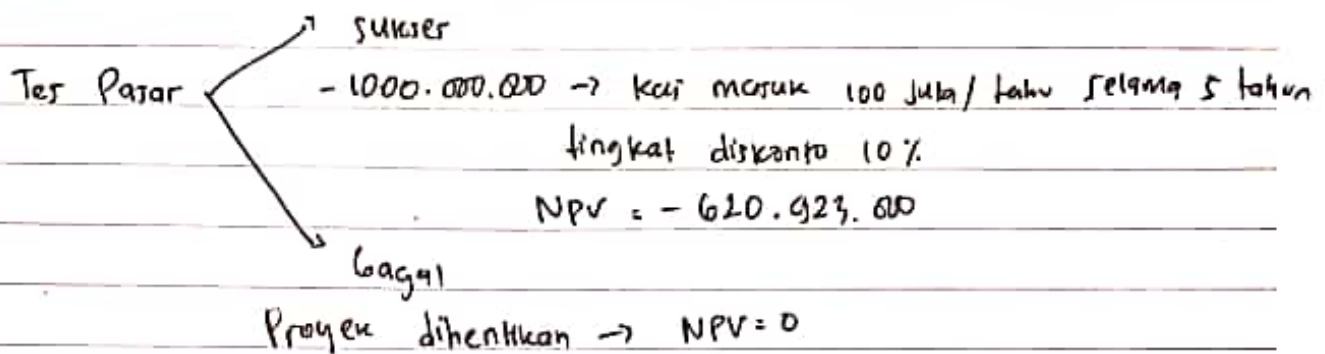 sukses
Tes Pasar
- 1000.000.000 → kas masuk 100 juta / tahu selama 5 tahun
tingkat diskonto 10 %
NPV = - 620.923.000
Gagal
Proyek dihentikan → NPV = 0